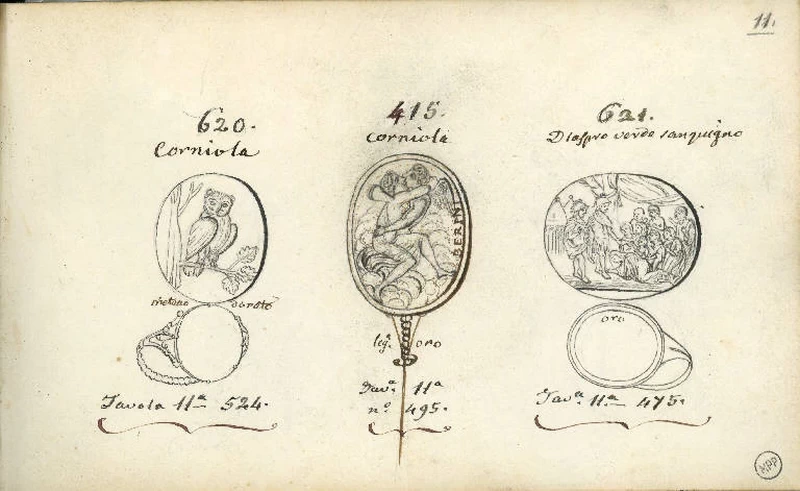 11.
620.
Corniola
metallo dorato
Tavola 11ª 524.
415.
Corniola
BERINI
leg.ª oro
Tav.ª 11ª
nº 495.
621.
Diaspro verde sanguigno
oro
Tav.ª 11.ª 475.
MPP